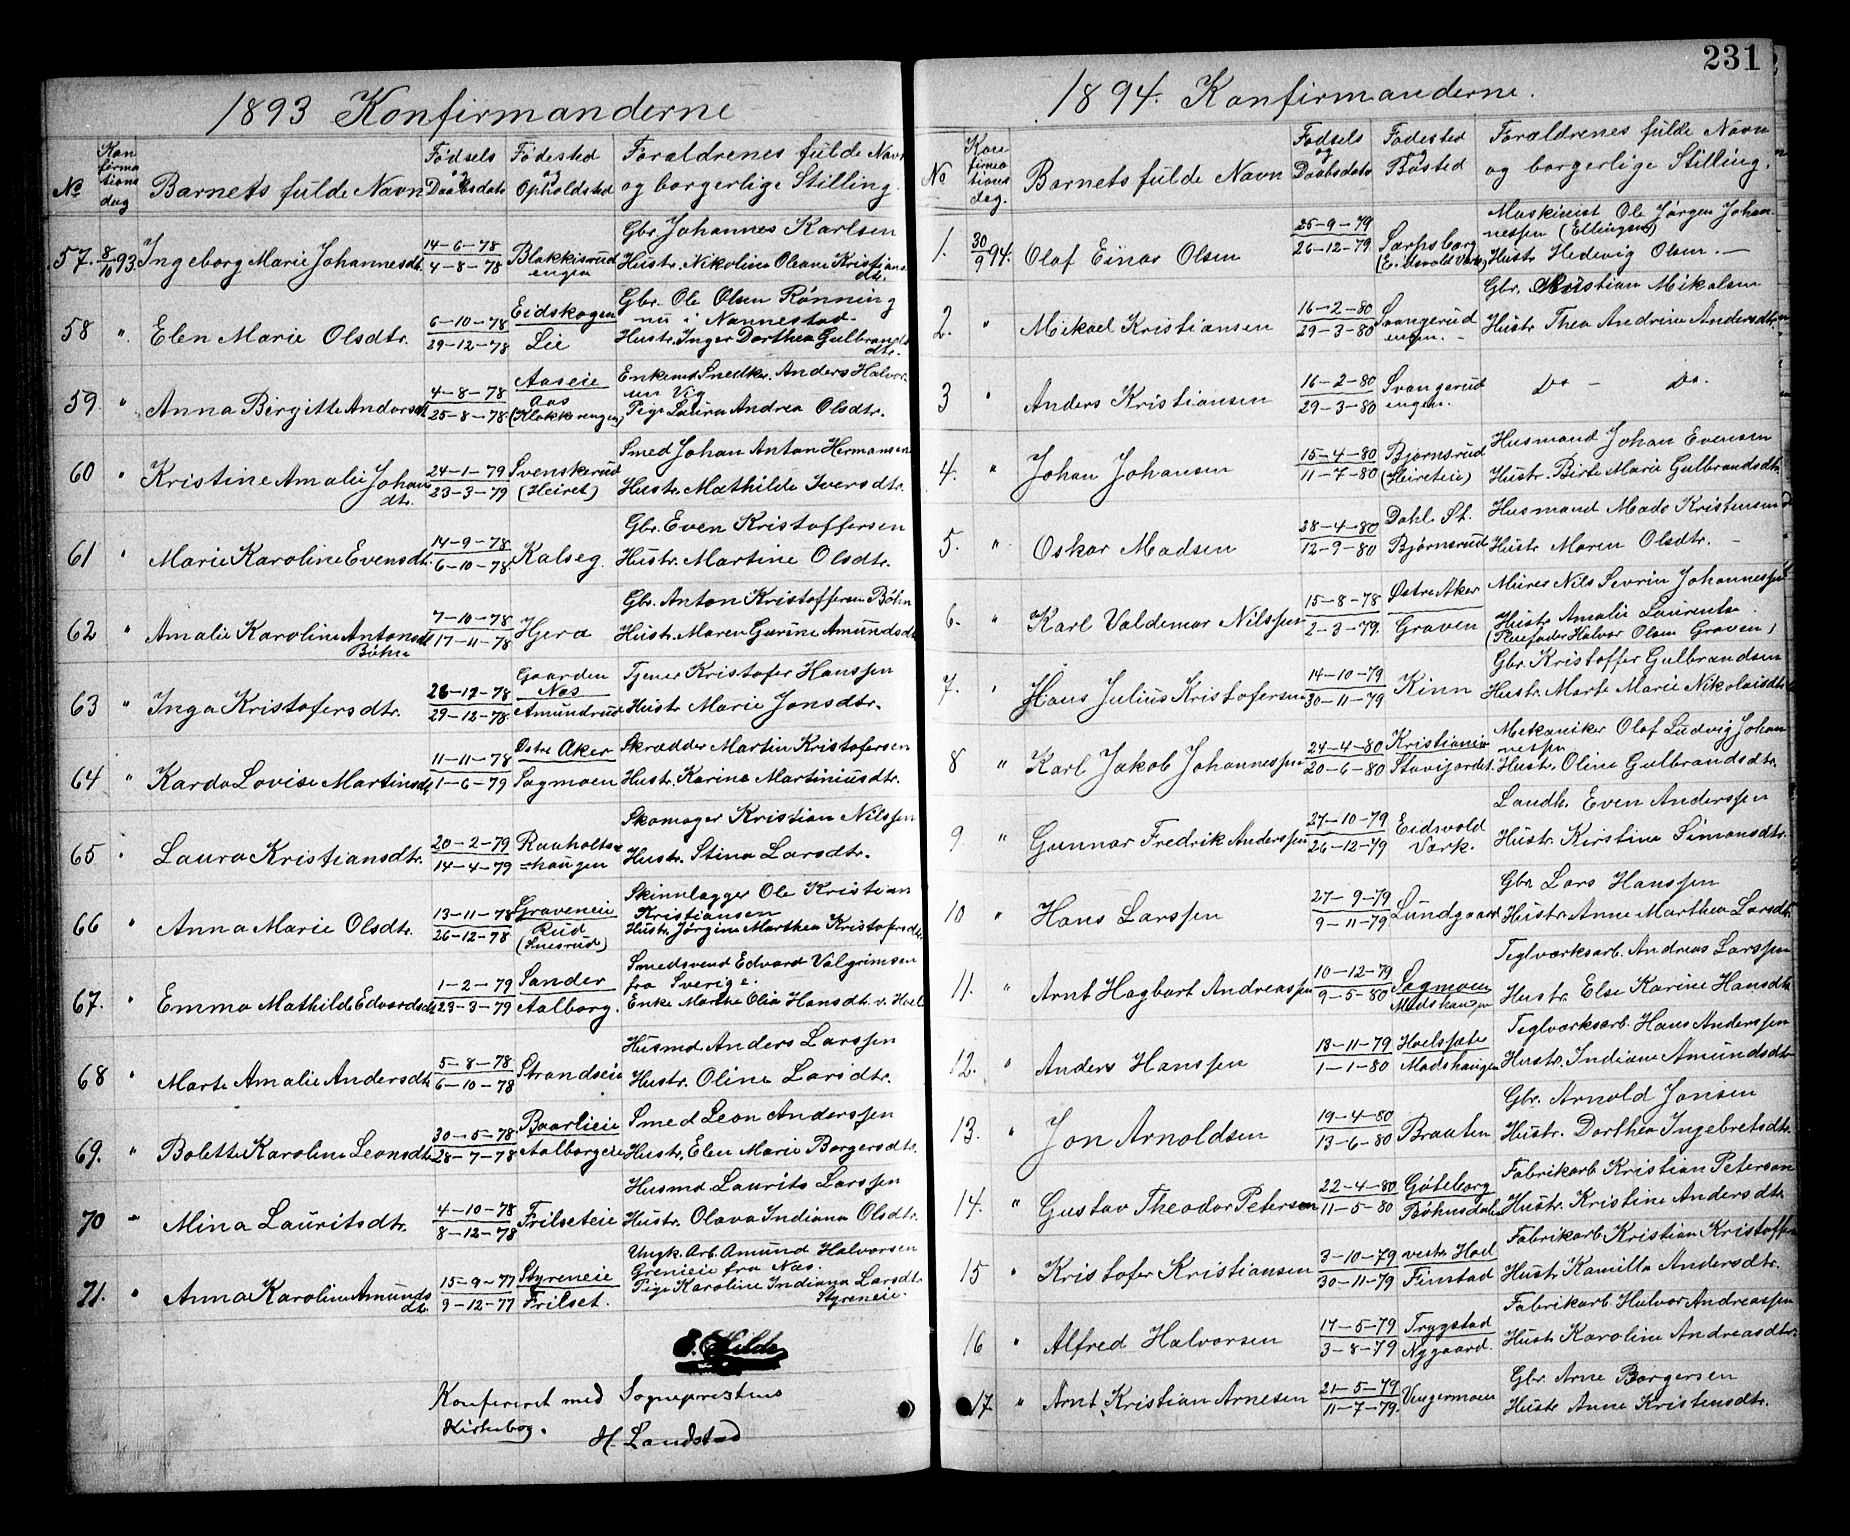 1893 Konfirmanderne
No
Kon
firma
tions
dag
Barnets fulde Navn
Fødsels
og
Daabsdato
Fødested
og
Opholdsted
Forældrenes fulde Navn
og borgerlige Stilling.
57. 8/10 93. Ingeborg Marie Johannesdtr.
14-6-78
4-8-78
Blakkisrud
engen
Gbr. Johannes Karlsen
Hustr. Nikoline Oleane Kristians
dtr.
58 " Elen Marie Olsdtr.
6-10-78
29-12-78
Eidskogen
Lie
Gbr. Ole Olsen Rönning
nu i Nannestad
Hustr. Inger Dorthea Gulbrands
dtr.
59. " Anna Birgitte Andersdtr.
4-8-78
25-8-78
Aaseie
Aas
(Klokkerengen)
Enkemd. Snedker Anders Halvor
sen Vig
Pige Laura Andrea Olsdtr.
60 " Kristine Amalie Johans
dtr.
24-1-79
23-3-79
Svenskerud
(Heiret)
Smed Johan Anton Hermansen
Hustr. Mathilde Iversdtr.
61 " Marie Karoline Evensdtr.
14-9-78
6-10-78
Kalseg.
Gbr. Even Kristoffersen
Hustr. Martine Olsdtr.
62 " Amalie Karoline Antonsdtr.
Böhn
7-10-78
17-11-78
Hjera
Gbr. Anton Kristoffersen Böhn
Hustr. Maren Gurine Amundsdtr.
63 " Inga Kristofersdtr.
26-12-78
29-12-78
Gaarden
Næs
Amundrud
Tjener Kristofer Hanssen
Hustr Marie Jonsdtr.
64 " Karda Lovise Martinsdtr
11-11-78
1-6-79
Østre Aker
Sagmoen
Skrædder Martin Kristofersen
Hustr. Karine Martiniusdtr.
65 " Laura Kristiansdtr.
20-2-79
14-4-79
Raaholts=
=haugen
Skomager Kristian Nilssen
Hustr. Stina Larsdtr.
66 " Anna Marie Olsdtr.
13-11-78
26-12-78
Graveneie
Rud
(Snesrud)
Skinnlægger Ole Kristian
Kristiansen
Hustr. Jørgine Marthea Kristofersdtr
67. " Emma Mathilde Edvardsdtr
1-2-79
23-3-79
Sander
Aalborg.
Smedsvend Edvard Valgrimsen
fra Sverige.
Enke Marthe Olia Hansdtr. v. Hoel
68 " Marte Amalie Andersdtr
5-8-78
6-10-78
Strandseie
Husmd. Anders Larssen
Hustr. Oline Larsdtr.
69. " Bolette Karoline Leonsdtr
30-5-78
28-7-78
Baarlieie
Aalborgeie
Smed Leon Anderssen
Hustr. Elen Marie Borgersdtr.
70 " Mina Lauritsdtr.
4-10-78
8-12-78
Frilseteie
Husmd Laurits Larssen
Hustr. Olava Indiana Olsdtr.
71. " Anna Karoline Amunds
dtr.
15-9-77
9-12-77
Styreneie
Frilset.
Ungk. Arb. Amund Halvorsen
Grenieie fra Næs.
Pige Karoline Indiana Larsdtr
Styreneie.
E. Hilde
Konfereret med Sogneprestens
Kirkebog.
H. Landstad
231
1894. Konfirmanderne.
No
Kon
firma
tions
dag.
Barnets fulde Navn
Fødsels
og
Daabsdato
Fødested
og
Bosted
Forældrenes fulde Navn
og borgerlige Stilling.
1. 30/9 94. Olaf Einar Olsen
25-9-79
26-12-79
Sarpsborg
(Eidsvold Værk)
Maskinist Ole Jørgen Johan
nessen (Ellingsen)
Hustr Hedevig Olsen. -
2. " Mikael Kristiansen
16-2-80
29-3-80
Svangerud
engen. -
Gbr. Kristian Mikalsen
Hustr. Thea Andrine Andersdtr.
3 " Anders Kristiansen
16-2-80
29-3-80
Svangerud
engen.
Do - Do.
4. " Johan Johansen
15-4-80
11-7-80
Bjørnsrud
(Heireteie)
Husmand Johan Evensen
Hustr. Birte Marie Gulbrandsdtr
5. " Oskar Madsen
28-4-80
12-9-80
Dahl St.
Bjørnsrud
Husmand Mads Kristensen
Hustr Maren Olsdtr. -
6. " Karl Valdemar Nilssen
15-8-78
2-3-79.
Østre Aker
Graven
Murer Nils Sevrin Johannessen
Hustr Amalie Laurentse.
(Pleiefader Halvor Olsen Graven)
7. " Hans Julius Kristofersen
14-10-79
30-11-79
Kinn
Gbr. Kristoffer Gulbrandsen
Hustr. Marte Marie Nikolaisdtr
8 " Karl Jakob Johannessen
24-4-80
20-6-80
Kristiania
Stavfjordet.
Mekaniker Olaf Ludvig Johan
nessen
Hustr. Oline Gulbrandsdtr.
9. " Gunnar Fredrik Anderssen
27-10-79
26-12-79
Eidsvold
Værk.
Landh. Even Anderssen
Hustr. Kirstine Simonsdtr.
10 " Hans Larssen
27-9-79
9-11-79
Lundgaard
Gbr Lars Hanssen
Hustr. Anne Marthea Larsdtr
11. " Arnt Hagbart Andreassen
10-12-79
9-5-80
Sagmoen
Madshaugen
Teglværksarb. Andreas Larssen
Hustr. Else Karine Hansdtr
12. " Anders Hanssen
13-11-79
1-1-80
Hoelsæte
Madshaugen
Teglværksarb. Hans Anderssen
Hustr. Indiane Amundsdtr
13. " Jon Arnoldsen
19-4-80
13-6-80
Braaten
Gbr. Arnold Jonsen
Hustr. Dorthea Ingebretsdtr.
14. " Gustav Theodor Petersen
22-4-80
11-5-80
Gøteborg
Bøhnsdalen
Fabrikarb Kristian Peterson
Hustr. Kristine Andersdtr.
15 " Kristofer Kristiansen
3-10-79
30-11-79
vestr. Hoel
Finstad
Fabrikarb. Kristian Kristoffer
Hustr. Kamilla Andersdtr.
16 " Alfred Halvorsen
17-5-79
3-8-79
Trygstad
Nygaard.
Fabrikarb. Halvor Andreassen
Hustr Karoline Andreasdtr.
17 " Arnt Kristian Arnesen
21-5-79
11-7-79.
Vengermoen
Gbr. Arne Borgersen
Hustr Anne Kristensdtr.